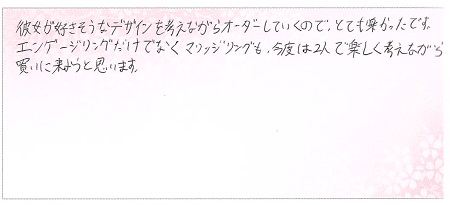 彼女が好きそうなデザインを考えながらオーダーしていくので、とても楽かったです。
エンゲージリングだけでなくマリッジリングも、今度は2人で楽しく考えながら
買いに来ようと思います。